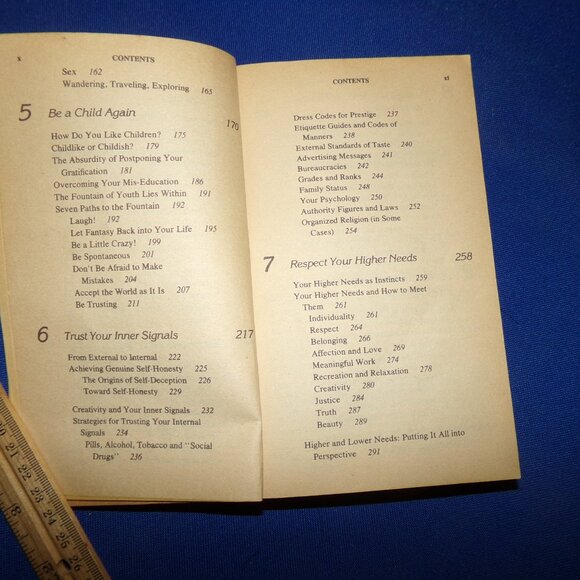 x CONTENTS
Sex 162
Wandering, Traveling, Exploring 165
5 Be a Child Again 170
How Do You Like Children? 175
Childlike or Childish? 179
The Absurdity of Postponing Your
Gratification 181
Overcoming Your Mis-Education 186
The Fountain of Youth Lies Within 191
Seven Paths to the Fountain 192
Laugh! 192
Let Fantasy Back into Your Life 195
Be a Little Crazy! 199
Be Spontaneous 201
Don't Be Afraid to Make
Mistakes 204
Accept the World as It Is 207
Be Trusting 211
6 Trust Your Inner Signals 217
From External to Internal 222
Achieving Genuine Self-Honesty 225
The Origins of Self-Deception 226
Toward Self-Honesty 229
Creativity and Your Inner Signals 232
Strategies for Trusting Your Internal
Signals 234
Pills, Alcohol, Tobacco and "Social
Drugs" 236
CONTENTS xi
Dress Codes for Prestige 237
Etiquette Guides and Codes of
Manners 238
External Standards of Taste 240
Advertising Messages 241
Bureaucracies 242
Grades and Ranks 244
Family Status 248
Your Psychology 250
Authority Figures and Laws 252
Organized Religion (in Some
Cases) 254
7 Respect Your Higher Needs 258
Your Higher Needs as Instincts 259
Your Higher Needs and How to Meet
Them 261
Individuality 261
Respect 264
Belonging 266
Affection and Love 269
Meaningful Work 274
Recreation and Relaxation 278
Creativity 280
Justice 284
Truth 287
Beauty 289
Higher and Lower Needs: Putting It All into
Perspective 291
20 21 22 23 24 25 26